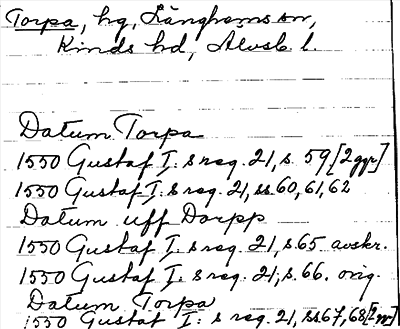 Torpa, hg, Länghems sn,
Kinds hd, Älvsb. l.
Datum Torpa
1550 Gustaf I: s reg. 21, s. 59 [2 ggr]
1550 Gustaf I: s reg. 21, ss. 60, 61, 62
Datum uff Dorpp
1550 Gustaf I: s reg. 21, s. 65 avskr.
1550 Gustaf I: s reg. 21, s. 66. orig.
Datum Torpa
1550 Gustaf I: s reg. 21, ss 67, 68,